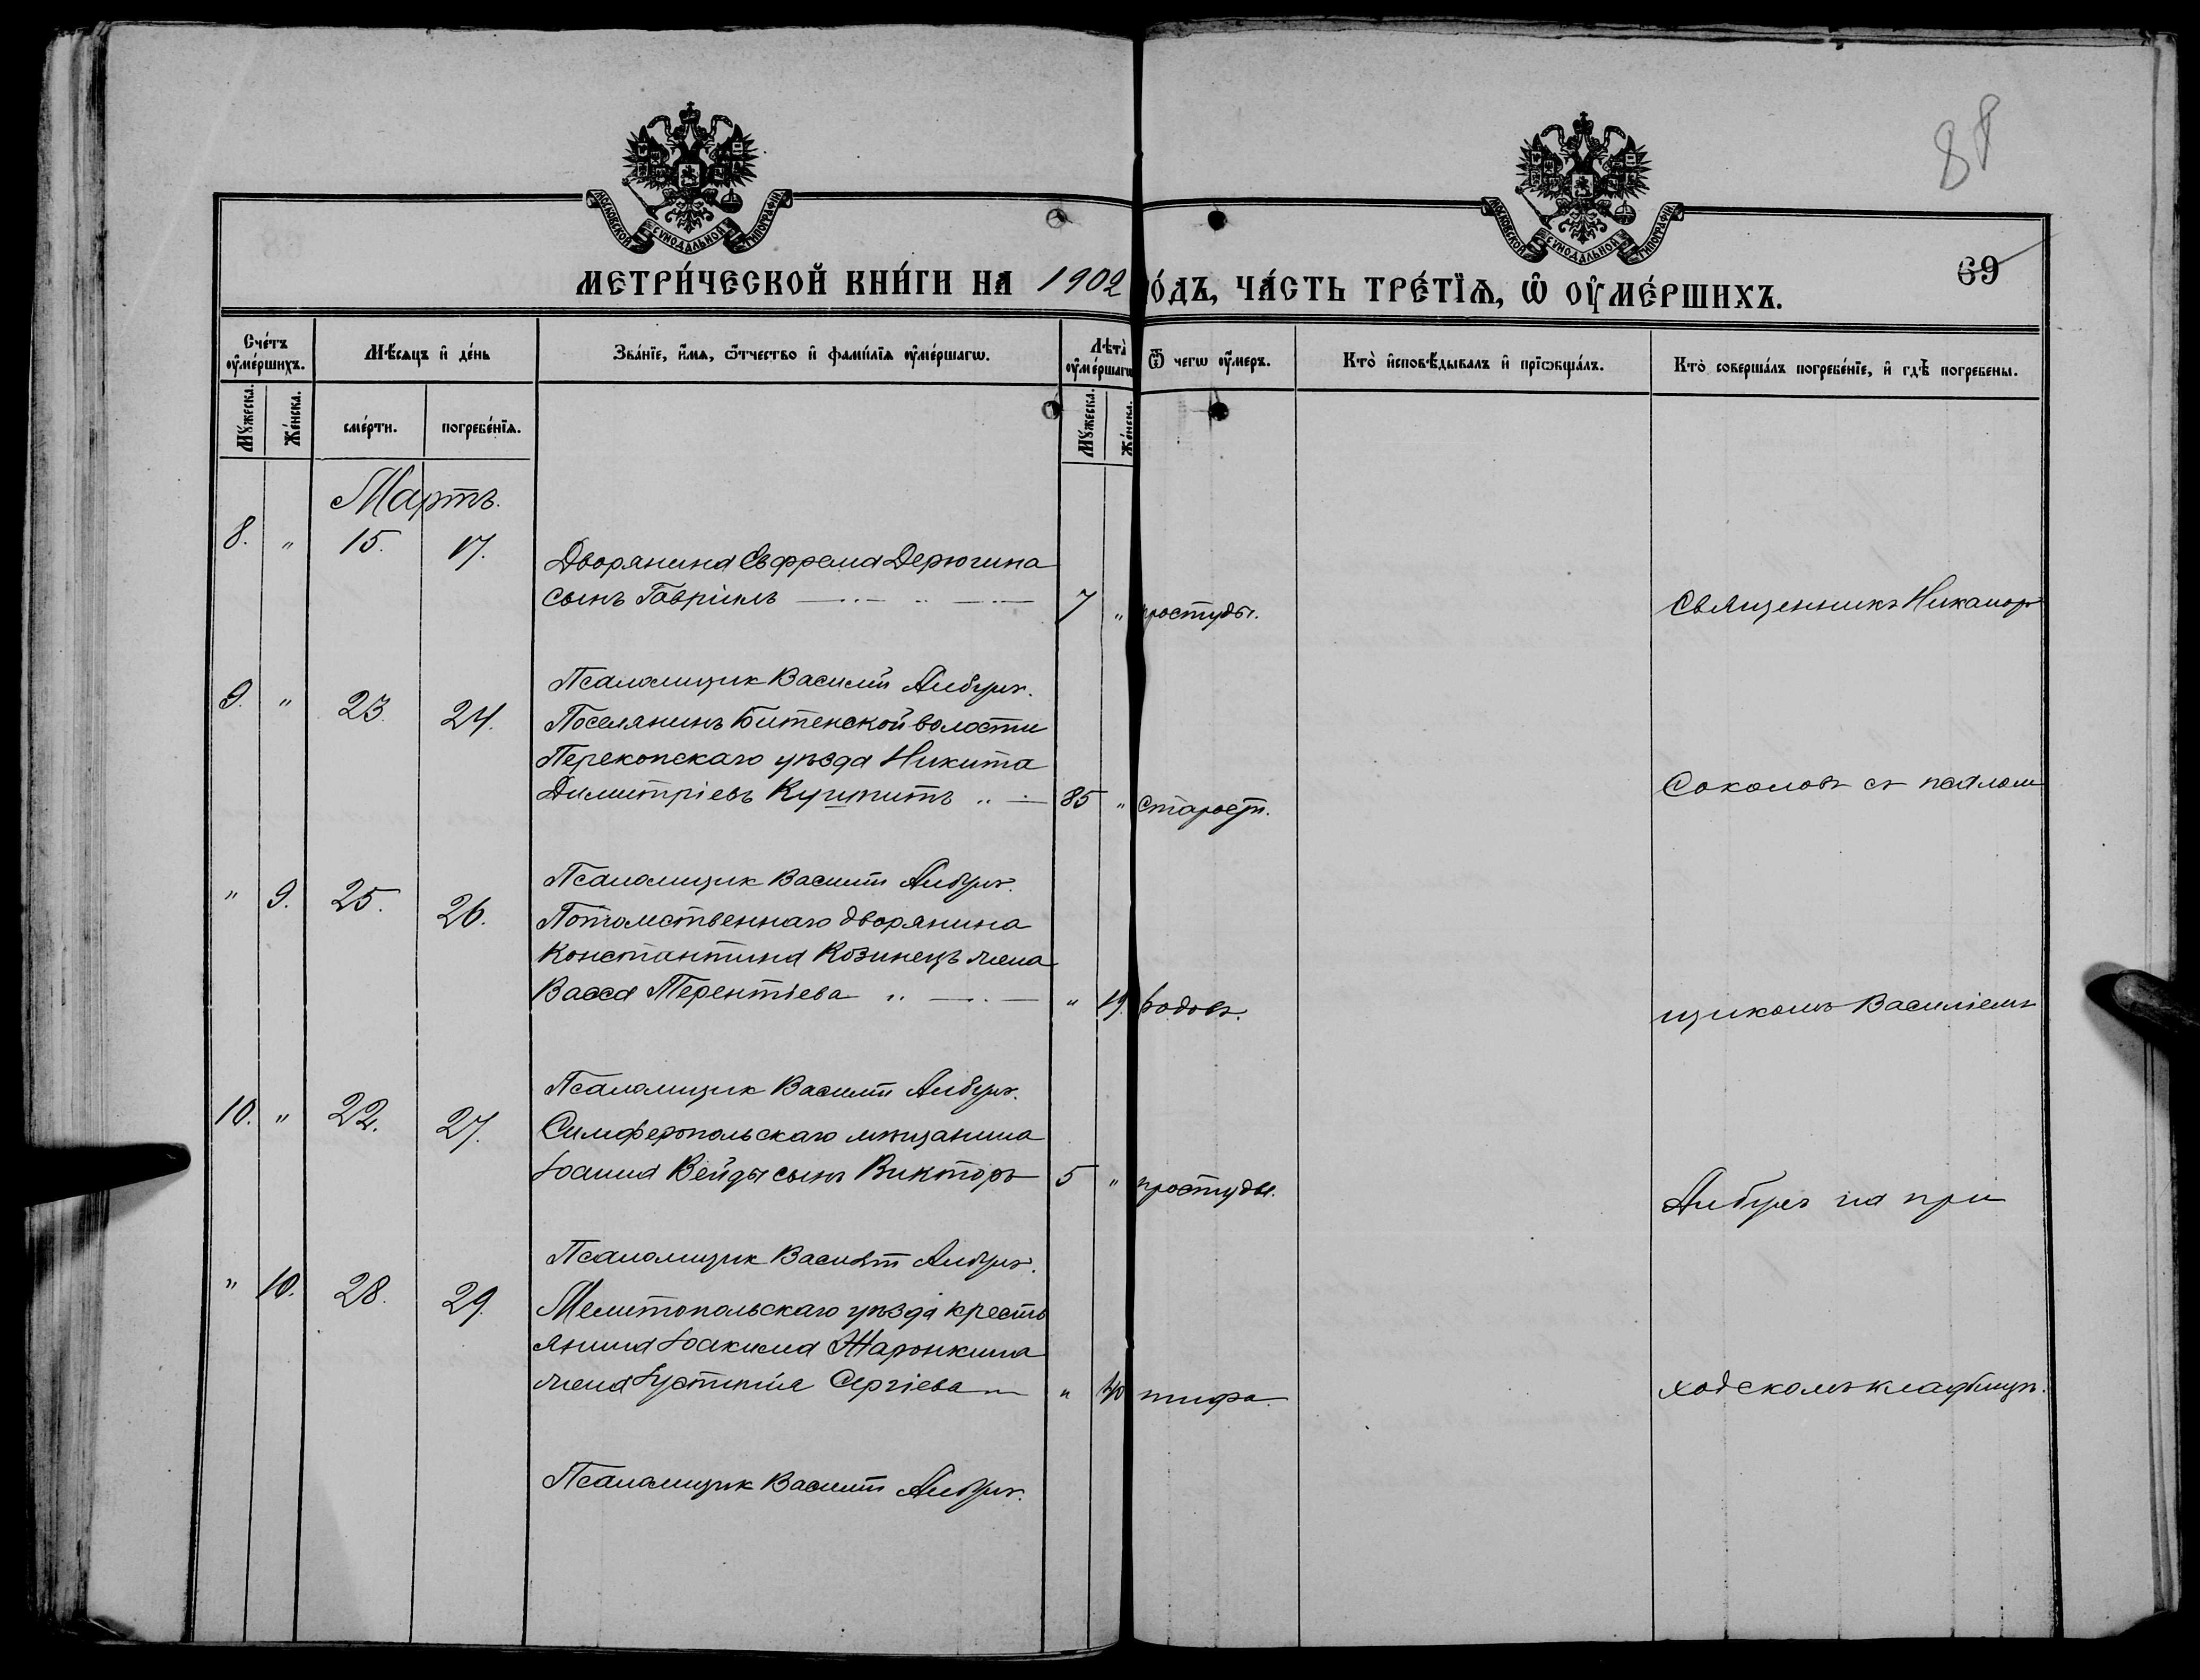 88
МОСКОВСКОЙ СѴНОДАЛЬНОЙ ТИПОГРАФІИ
МОСКОВСКОЙ СѴНОДАЛЬНОЙ ТИПОГРАФІИ
69
МЕТРИ́ЧЕСКОЙ КНИ́ГИ НА 1902 О́ДЪ, ЧА́СТЬ ТРЕ́ТЇѦ, Ѿ ОУ҆МЕ́РШИХЪ.
Сче́тъ оу҆ме́ршихъ.
Мѣ́сяцъ и҆ де́нь
Зва́нїе, и҆́мя, ѻ҆́тчество и҆ фами́лїя оу҆ме́ршагѡ.
Лѣта̀ оу҆ме́ршагѡ
Ѿ чегѡ̀ оу҆́меръ.
Кто̀ и҆сповѣ́дывалъ и҆ прїѡбща́лъ.
Кто̀ соверша́лъ погребе́нїе, и҆ гдѣ̀ погребены̀.
Мꙋ́жеска.
Же́нска.
сме́рти.
погребе́нїя.
Мꙋ́жеска.
Же́нска.
Мартъ.
8. " 15. 17. Дворянина Евфрема Дерюгина
сынъ Гавріилъ 7 " простуды. Священникъ Никаноръ
Псаломщик Василій
9. " 23. 24. Поселянинъ Битенской волости
Перекопскаго уѣзда Никита
Димитріевъ 85 " старости. Соколовъ съ псалом
Псаломщик Василій
" 9. 25. 26. Потомственнаго дворянина
Константина Козинецъ жена
Васса Терентіева " 19. родовъ. щикомъ Василіемъ
Псаломщик Василій
10. " 22. 27. Симферопольскаго мѣщанина
Іоанна Вейды сынъ Викторъ 5 " простуды. на при
Псаломщик Василій
" 10. 28. 29. Мелитопольскаго уѣзда кресть
янина Іоакима Жаронкина
жена Іустинія Сергіева " 40 тифа. ходскомъ кладбищѣ.
Псаломщик Василій